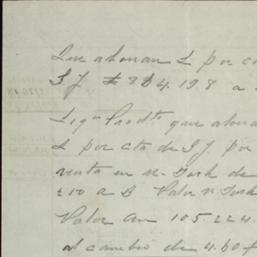 Que abonan L por c
S. J. # 8D4.198 a
Liqn Prodto que abona
L por cta de S J por
venta en N. York de
£10 a B Valor N York
Valor en 105224.
al cambio de 4.80